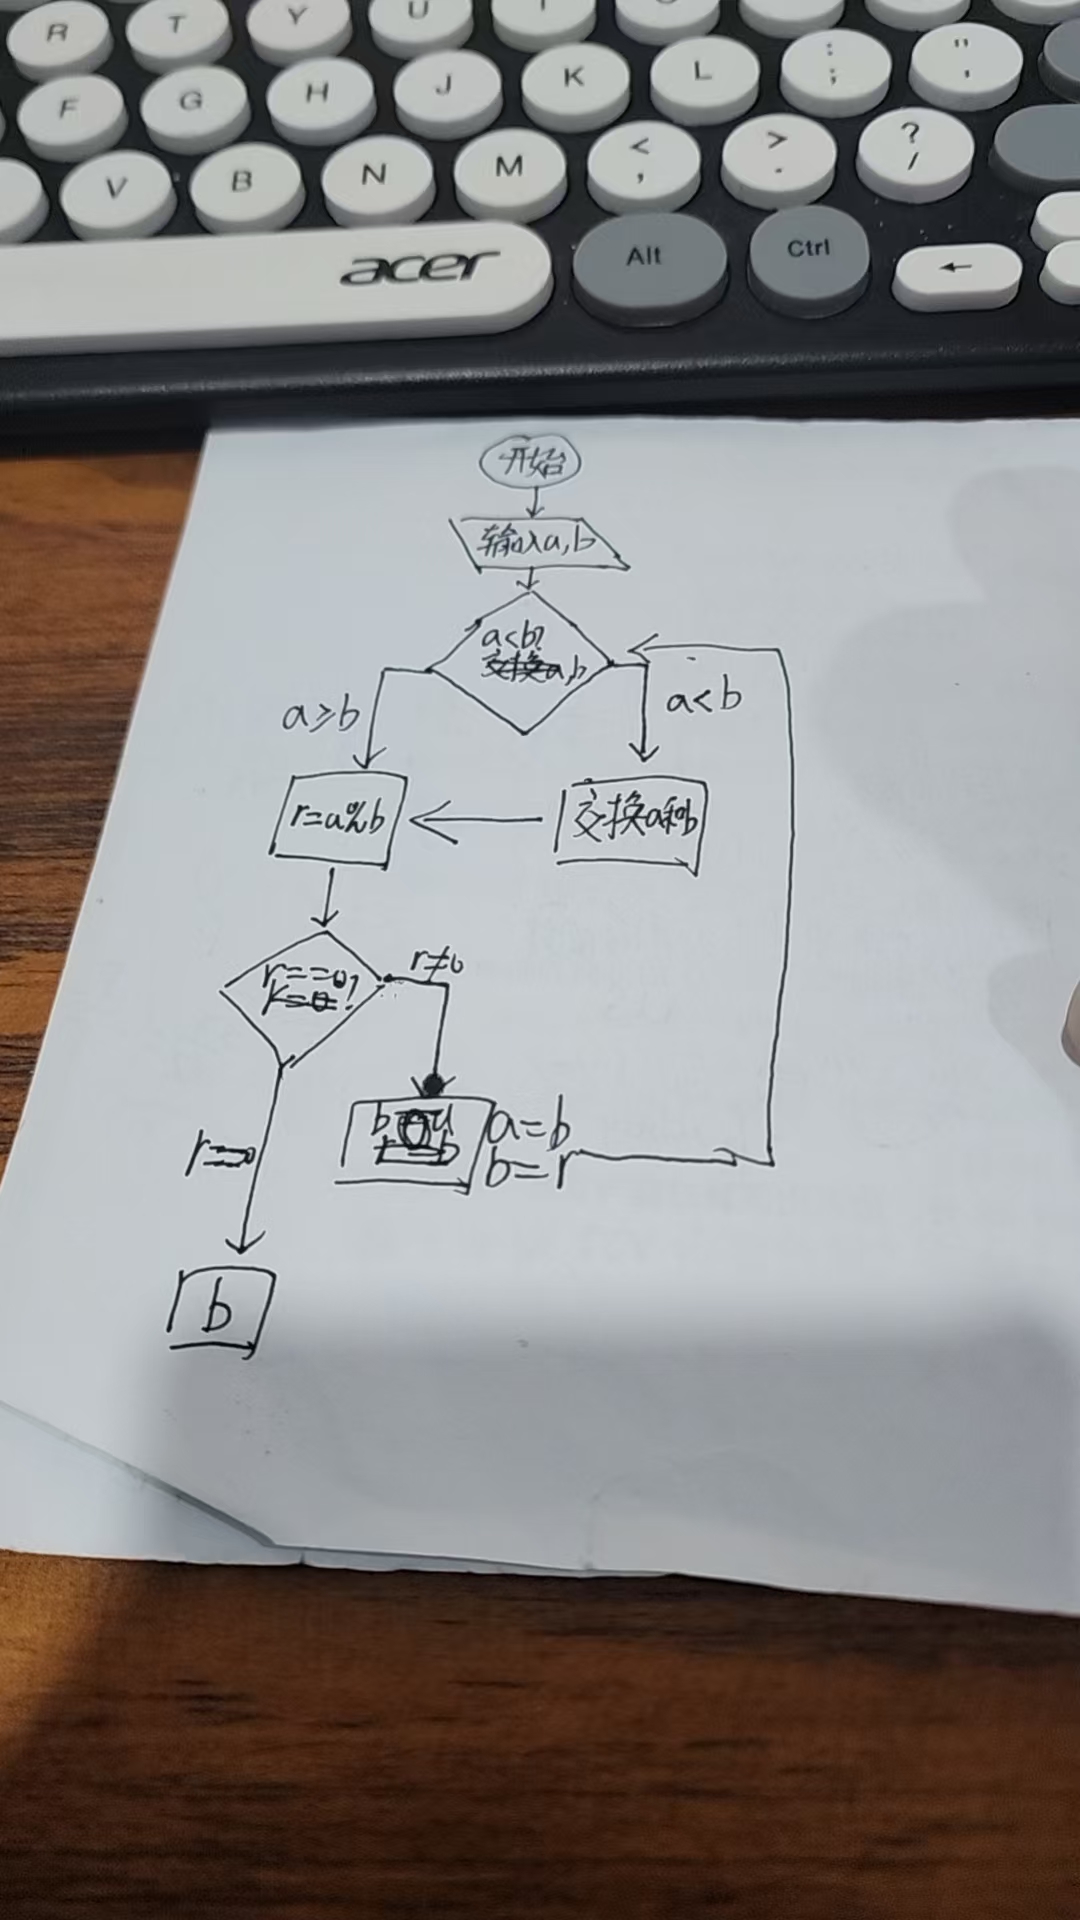 R T Y U
F G H J K L : ; " '
V B N M < , > . ? /
acer Alt Ctrl ←
开始
输入a,b
a<b?
交换a,b
a≥b
a<b
r=a%b
交换a和b
r==0?
r≠0
a=b
b=r
r==0
b